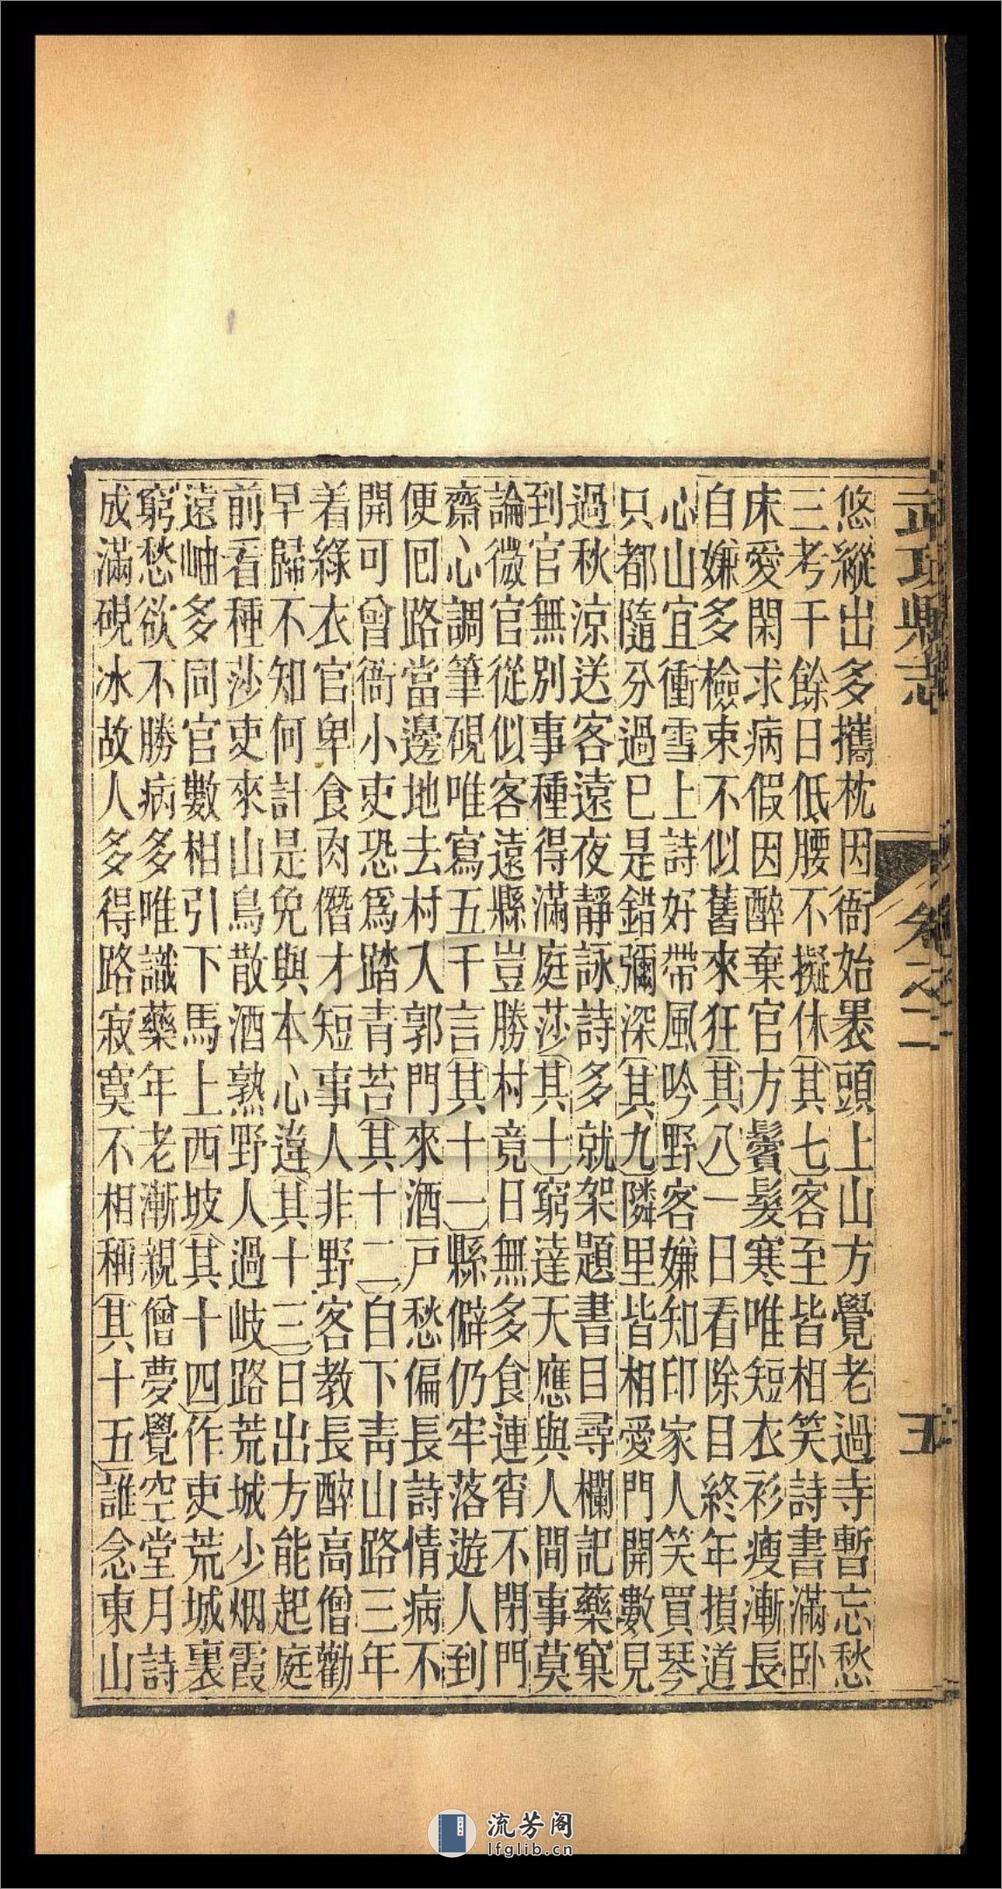 武功縣志 卷之二 五
悠縱出多攜枕因衙始裹頭上山方覺老過寺暫忘愁
三考千餘日低腰不擬休其七客至皆相笑詩書滿臥
床愛閑求病假因醉棄官方鬢髮寒唯短衣衫瘦漸長
自嫌多檢束不似舊來狂其八一日看除目終年損道
心山宜衝雪上詩好帶風吟野客嫌知印家人笑買琴
只都隨分過已是錯彌深其九隣里皆相愛門開數見
過秋涼送客遠夜靜詠詩多就架題書目尋欄記藥窠
到官無別事種得滿庭莎其十窮達天應與人間事莫
論微官從似客遠縣豈勝村竟日無多食連宵不閉門
齋心調筆硯唯寫五千言其十一縣僻仍牢落遊人到
便回路當邊地去村入郭門來酒戶愁偏長詩情病不
開可曾衙小吏恐爲踏青苔其十二自下青山路三年
着綠衣官卑食肉僭才短事人非野客教長醉高僧勸
早歸不知何計是免與本心違其十三日出方能起庭
前看種莎吏來山鳥散酒熟野人過岐路荒城少烟霞
遠岫多同官數相引下馬上西坡其十四作吏荒城裏
窮愁欲不勝病多唯識藥年老漸親僧夢覺空堂月詩
成滿硯冰故人多得路寂寞不相稱其十五誰念東山
流芳阁
lfglib.cn